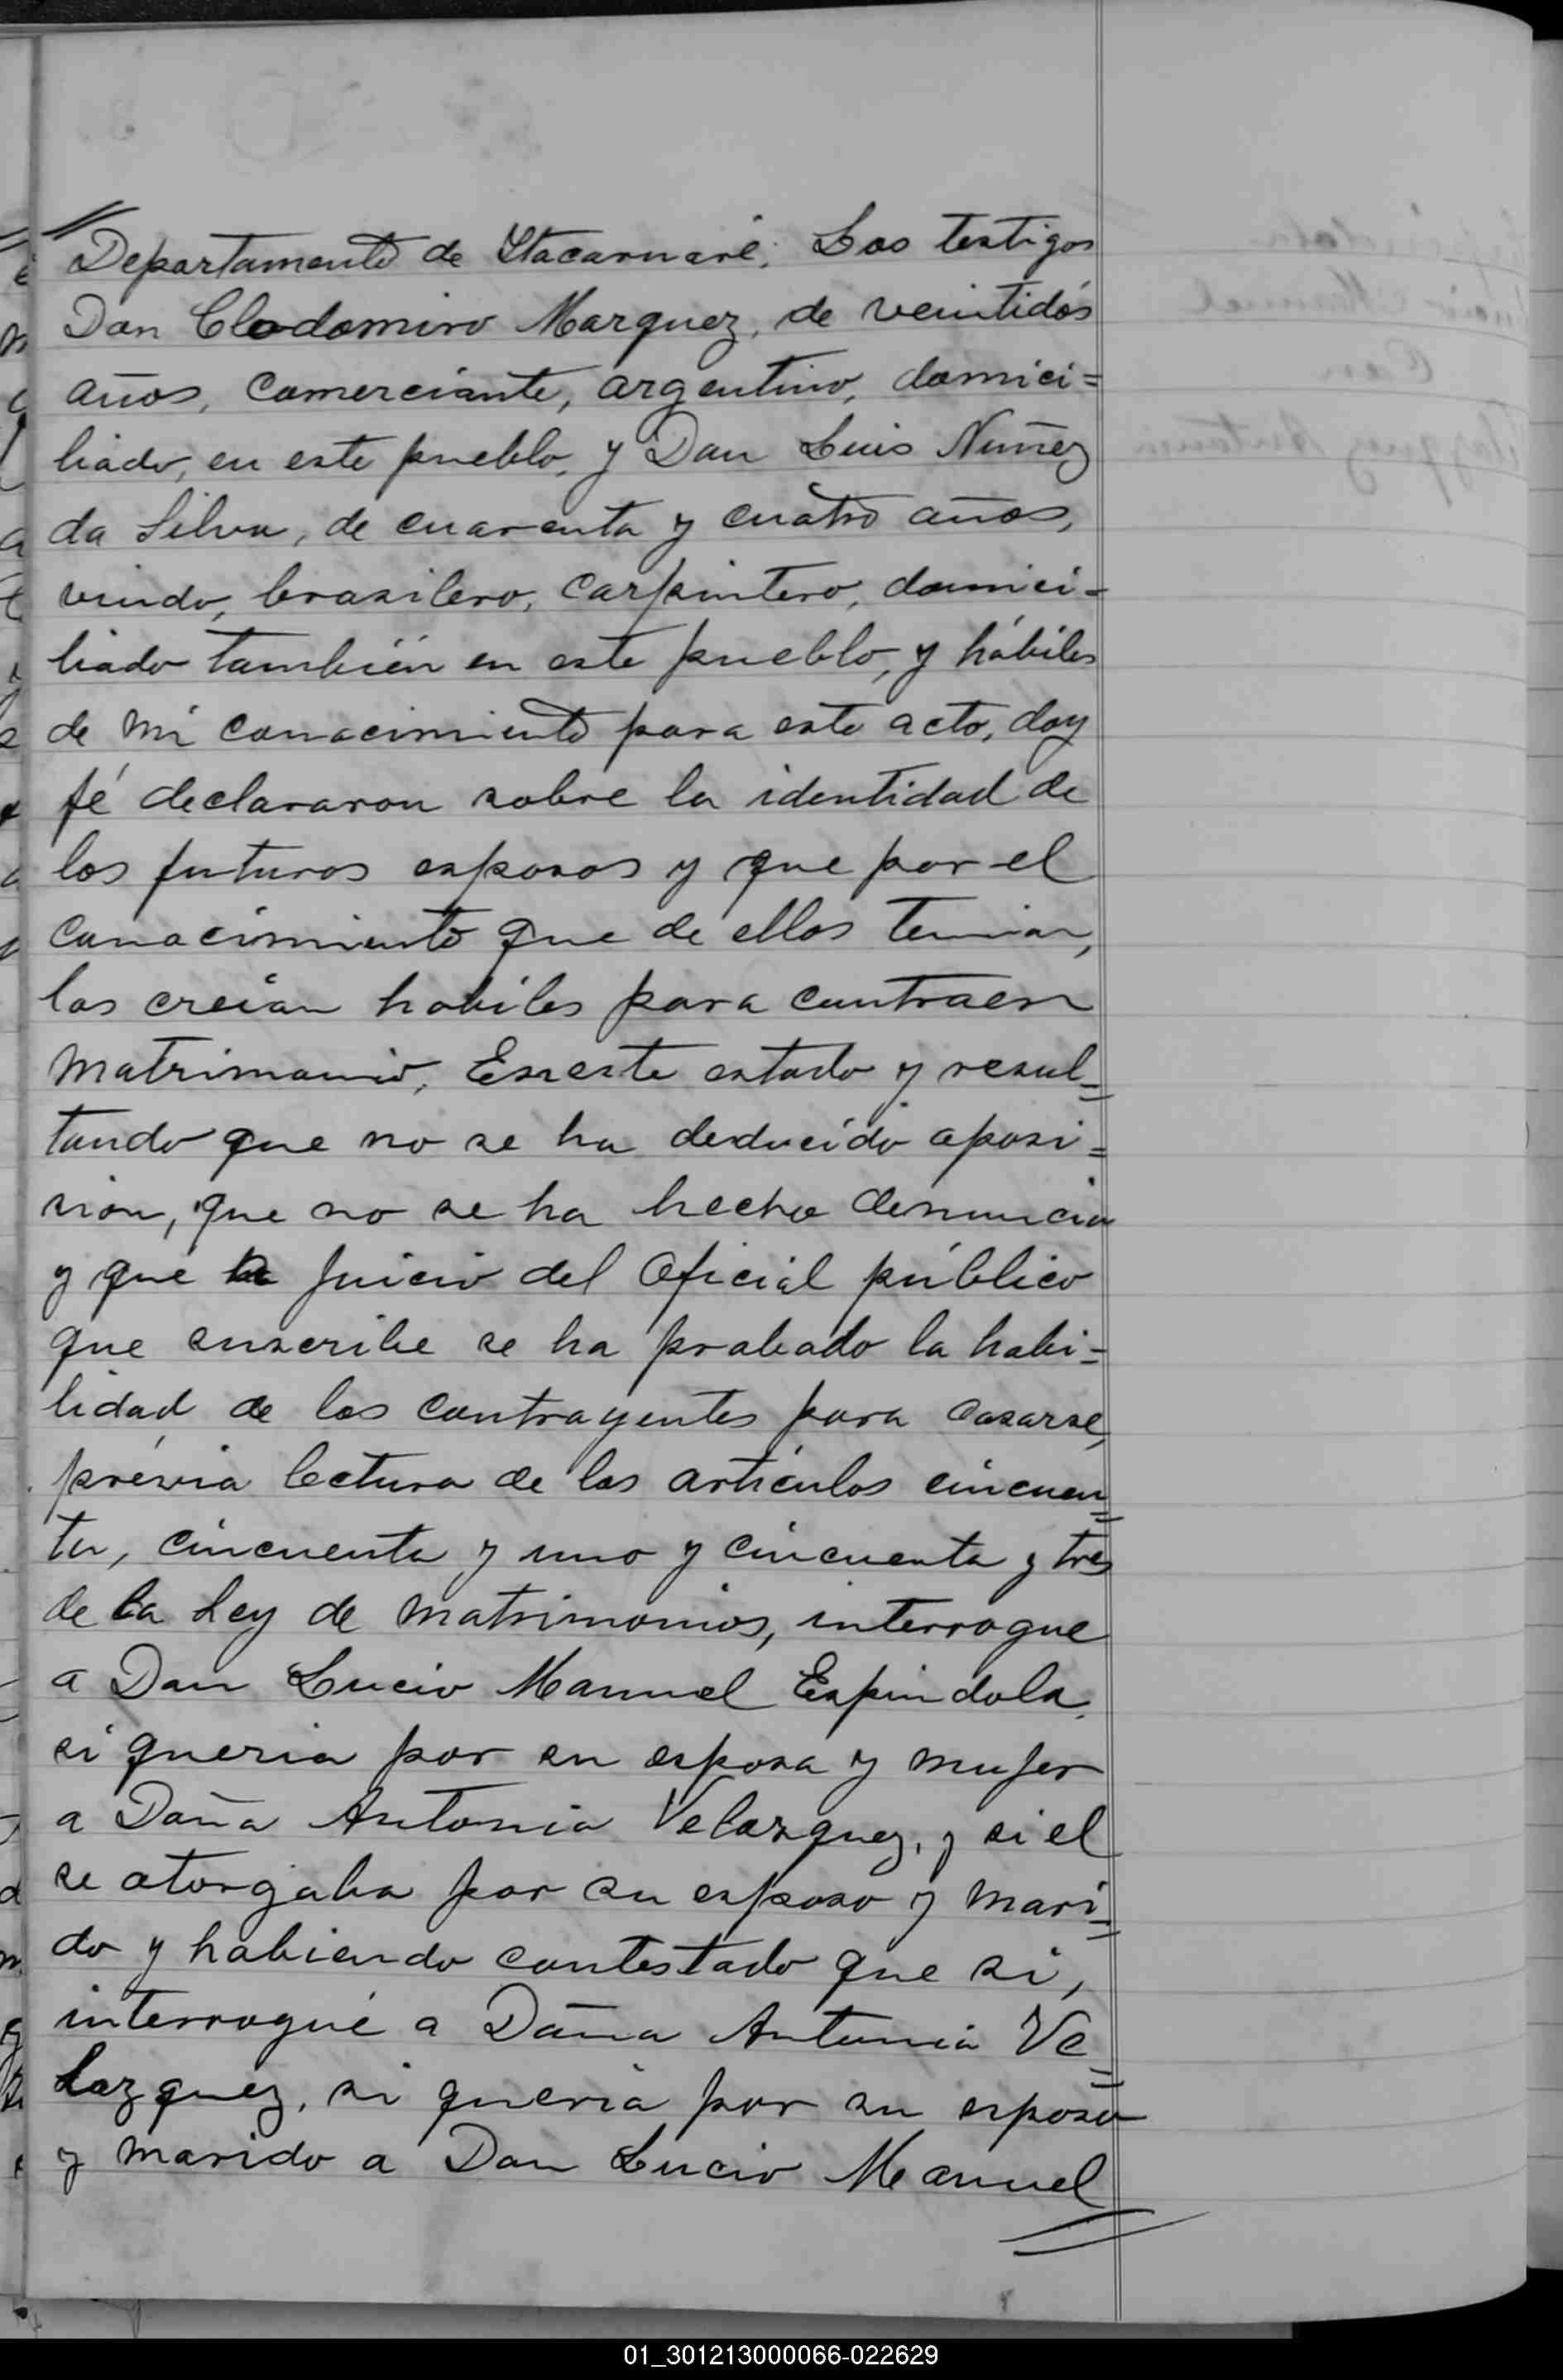 Departamento de Itacaruaré. Los testigos
Don Clodomiro Marquez, de veintidós
años, comerciante, argentino, domici=
liado, en este pueblo, y Don Luis Nuñez
da Silva, de cuarenta y cuatro años,
viudo, brasilero, carpintero, domici=
liado también en este pueblo, y hábiles
de mi conocimiento para este acto, doy
fé declararon sobre la identidad de
los futuros esposos y que por el
conocimiento que de ellos tenian,
los creían habiles para contraer
matrimonio. En este estado y resul=
tando que no se ha deducido oposi=
sion, que no se ha hecho denuncia
y que a juicio del Oficial público
que suscribe se ha probado la habi=
lidad de los contrayentes para casarse,
prévia lectura de los artículos cincuen=
ta, cincuenta y uno y cincuenta y tres
de la Ley de matrimonios, interrogue
a Don Lucio Manuel Espindola,
si queria por su esposa y mujer
a Doña Antonia Velazquez, y si el
se otorgaba por su esposo y mari=
do y habiendo contestado que si,
interrogué a Doña Antonia Ve=
lazquez, si queria por su esposo
y marido a Don Lucio Manuel
01_301213000066-022629